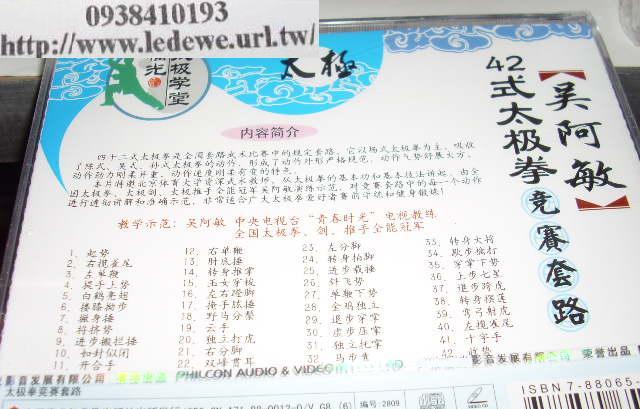 0938410193
http://www.ledewe.url.tw/
太极学堂
太極
【吴阿敏】
42式太极拳竞赛套路
内容简介
四十二式太极拳是全国套路武术比赛中的规定套路。它以杨式太极拳为主，吸收
了陈式、吴式、孙式太极拳的动作，形成了动作外形严格规范，动作气势舒展大方，
动作劲力刚柔并重，动作速度刚柔有变的特点。
本片特邀北京体育大学资深武术教师，从太极拳的基本功和基本技法讲起，由全
国太极拳、太极剑、太极推手全能冠军吴阿敏演练示范，对竞赛套路中的每一个动作
进行透彻讲解和准确示范，非常适合广大太极拳爱好者赛前训练和健身锻炼！
教学示范：吴阿敏 中央电视台“青春时光”电视教练
全国太极拳、剑、推手全能冠军
1、起势
2、右揽雀尾
3、左单鞭
4、提手上势
5、白鹤亮翅
6、搂膝拗步
7、撇身捶
8、捋挤势
9、进步搬拦捶
10、如封似闭
11、开合手
12、右单鞭
13、肘底捶
14、转身推掌
15、玉女穿梭
16、左右蹬脚
17、掩手肱捶
18、野马分鬃
19、云手
20、独立打虎
21、右分脚
22、双峰贯耳
23、左分脚
24、转身拍脚
25、进步栽捶
26、斜飞势
27、单鞭下势
28、金鸡独立
29、退步穿掌
30、虚步压掌
31、独立托掌
32、马步靠
33、转身大捋
34、歇步擒打
35、穿掌下势
36、上步七星
37、退步跨虎
38、转身摆莲
39、弯弓射虎
40、左揽雀尾
41、十字手
42、收势
影音发展有限公司
荣誉出品
PHILCON AUDIO & VIDEO
影音发展有限公司 荣誉出品
太极拳竞赛套路
编号：2809
ISBN 7-88065-